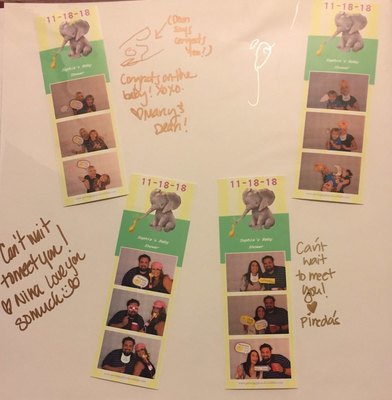 11-18-18
Sophia's Baby
Shower
(Dean
says
congrats
too!:)
Congrats on the
baby! xoxo.
♡ Marcy &
Dean!
11-18-18
Sophia's Baby
Shower
Can't wait
to meet you!
♡ Nina love you
so much :) ♡
11-18-18
Sophia's Baby
Shower
11-18-18
Sophia's Baby
Shower
Can't
wait
to meet
you!
♡
Pineda's